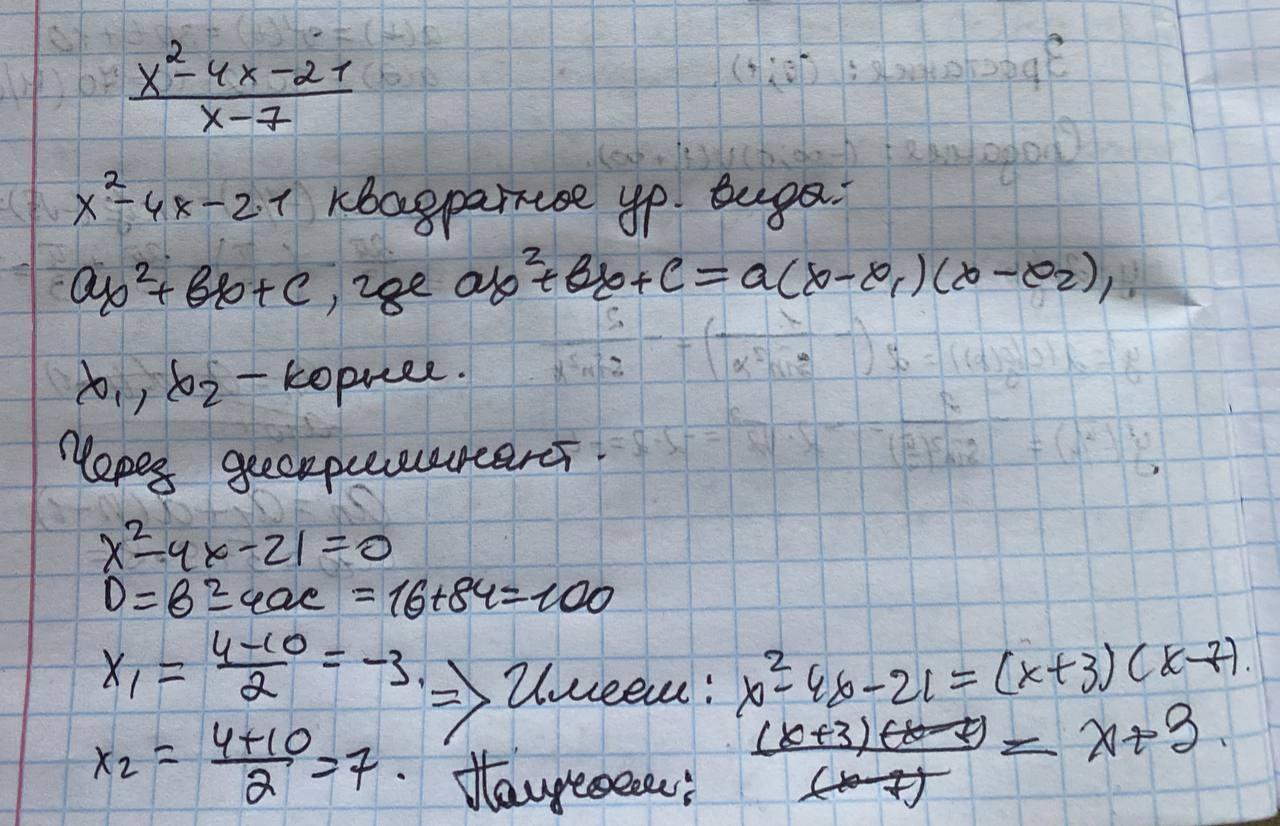 x²-4x-21
x-7
x²-4x-21 квадратное ур. вида:
ax²+вx+с, где ax²+вx+с=a(x-x₁)(x-x₂),
x₁, x₂ - корни.
Через дискриминант.
x²-4x-21=0
D=в²-4ac=16+84=100
x₁ = (4-10)/2 = -3.
x₂ = (4+10)/2 = 7.
=> Имеем: x²-4x-21=(x+3)(x-7).
Получаем: (x+3)(x-7)/(x-7) = x+3.